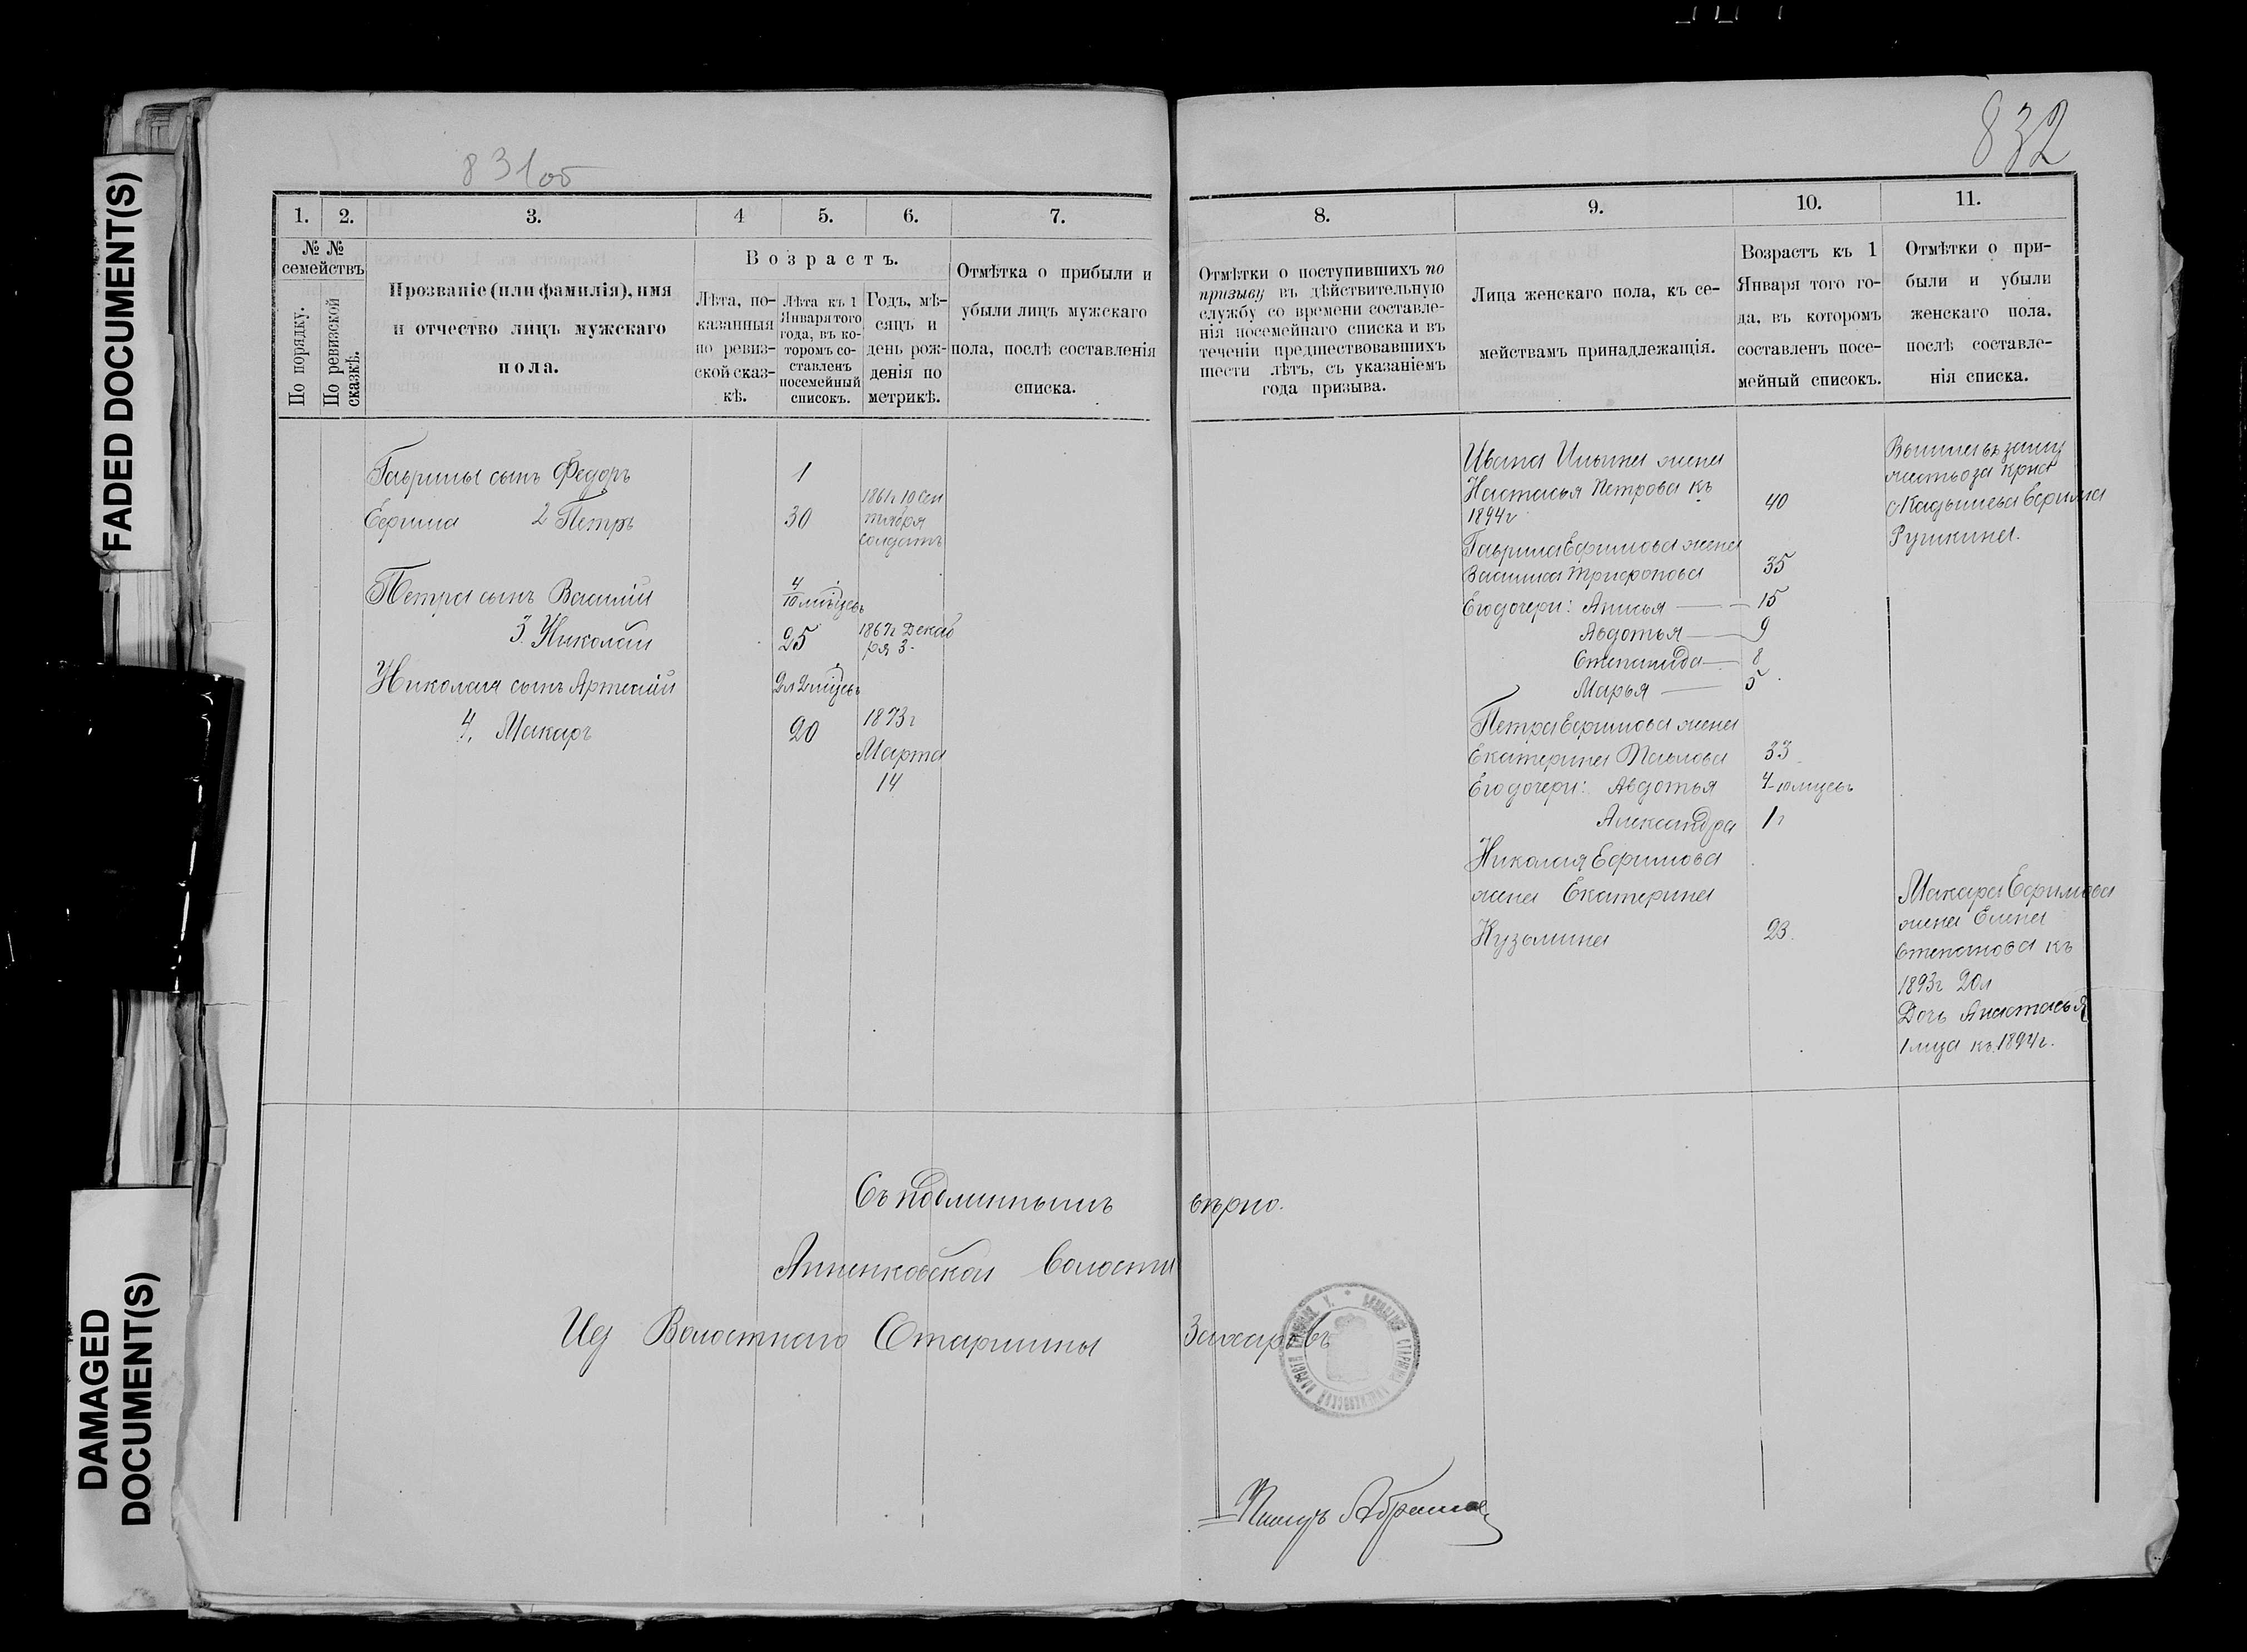 FADED DOCUMENT(S)
DAMAGED
DOCUMENT(S)
831 об
832
1.
2.
3.
4
5.
6.
7.
№ №
семействъ
По порядку.
По ревизской
сказкѣ.
Прозваніе (или фамилія), имя
и отчество лицъ мужскаго
пола.
Возрастъ.
Лѣта, по-
казанныя
по ревиз-
ской сказ-
кѣ.
Лѣта къ 1
Января того
года, въ ко-
торомъ со-
ставленъ
посемейный
списокъ.
Годъ, мѣ-
сяцъ и
день рож-
денія по
метрикѣ.
Отмѣтка о прибыли и
убыли лицъ мужскаго
пола, послѣ составленія
списка.
Гаврилы сынъ Федоръ 1
Ефима 2 Петръ 30
1861г 10 Сен
тября
солдатъ
Петра сынъ Василій 4/10 мѣсцевъ
3. Николай 25
1867г Декаб
ря 3.
Николая сынъ Артемій 2л 2 мѣсцевъ
4. Макаръ 20
1873г
Марта
14
8.
9.
10.
11.
Отмѣтки о поступившихъ по
призыву въ дѣйствительную
службу со времени составле-
нія посемейнаго списка и въ
теченіи предшествовавшихъ
шести лѣтъ, съ указаніемъ
года призыва.
Лица женскаго пола, къ се-
мействамъ принадлежащія.
Возрастъ къ 1
Января того го-
да, въ которомъ
составленъ посе-
мейный списокъ.
Отмѣтки о при-
были и убыли
женскаго пола.
послѣ составле-
нія списка.
Ивана Ильина жена
Настасья Петрова къ
1894г 40
Гаврила Ефимова жена
Трифонова 35
Его дочери: Анисья — 15
Авдотья — 9
Степанида — 8
Марья — 5
Петра Ефимова жена
Екатерина Павлова 33
Его дочери: Авдотья 4-10 мцевъ
Александра 1г
Николая Ефимова
жена Екатерина
Кузьмина 23.
Вышла въ заму
жество за Крист
Ефима
Рушкина.
Макара Ефимова
жена Елена
Степанова къ
1893г 20л
Дочь Анастасья
1 мца къ 1894г.
Съ подлиннымъ вѣрно.
Анненковской Волости
Ид Волостнаго Старшины Захаровъ
Писарь